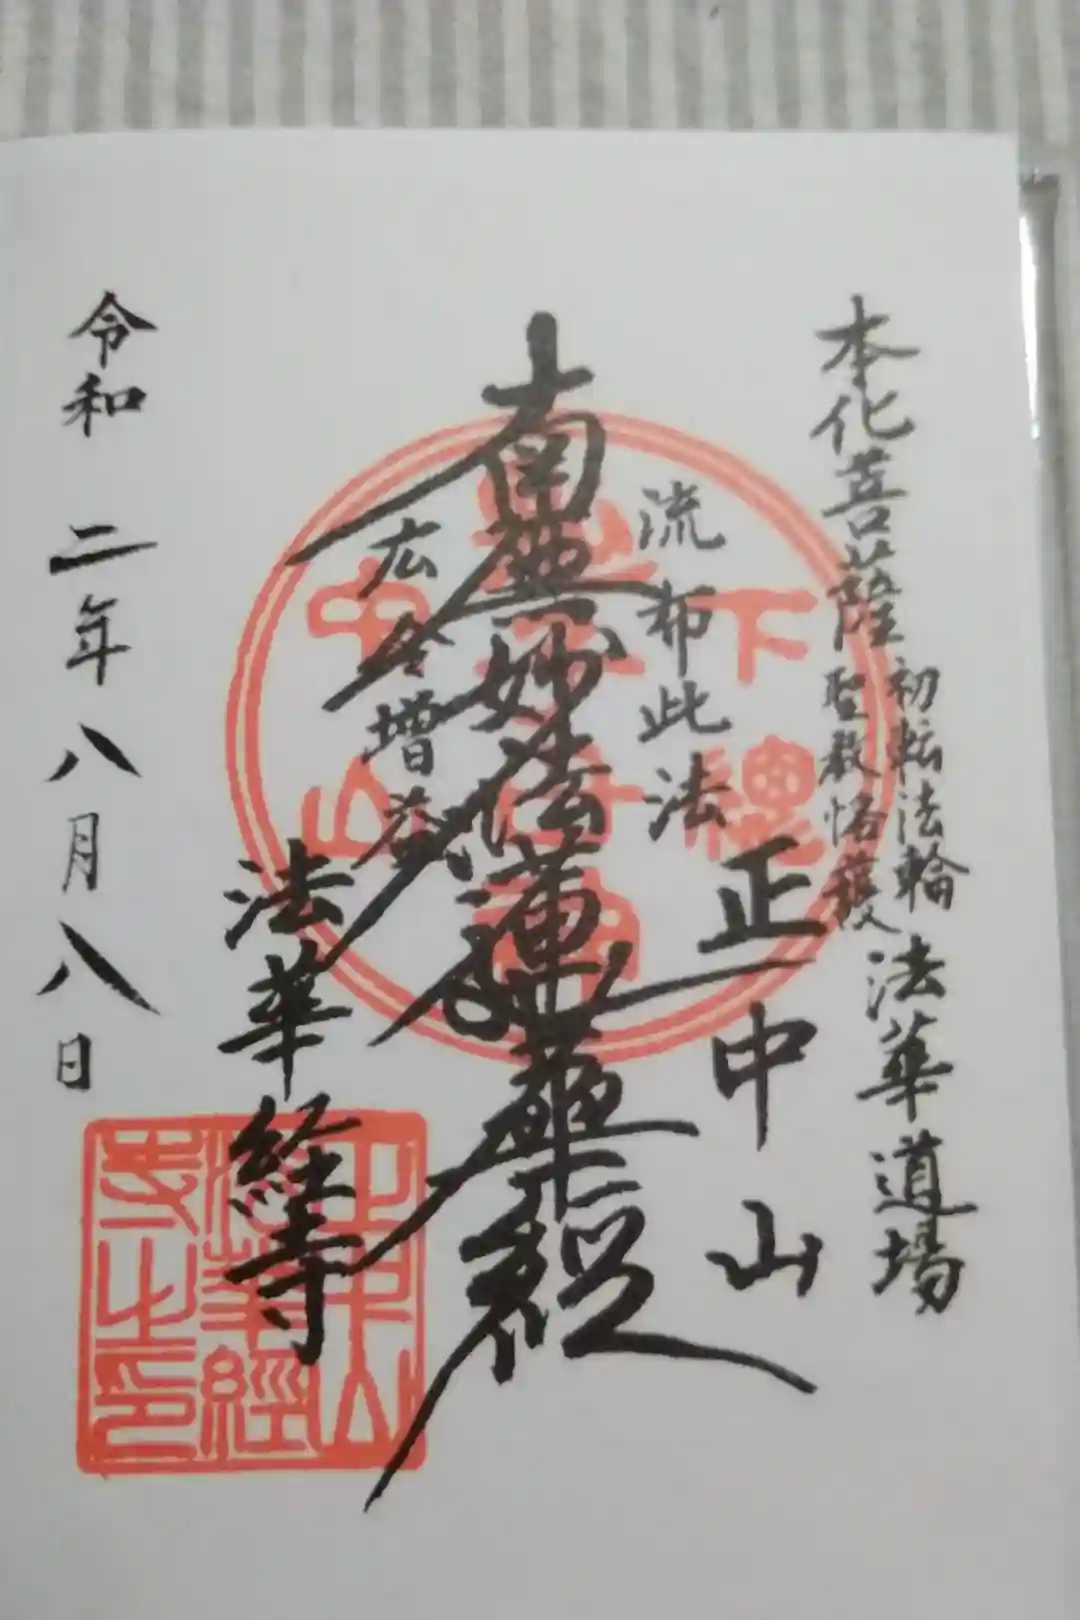 本化菩薩
初転法輪
聖教恪護
法華道場
正中山
流布此法
南無妙法蓮華経
広令増益
法華経寺
令和二年八月八日
下總
中山
正中山
法華經
寺之印